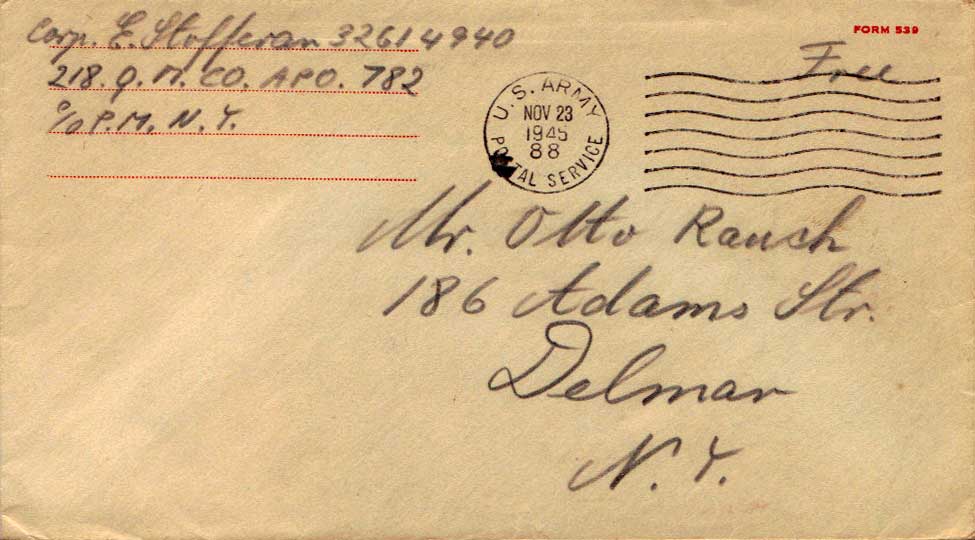 Corp. E. Stofferan 32614940
218. Q. M. CO. APO. 782
c/o P.M. N.Y.
FORM 539
Free
U.S. ARMY
NOV 23
1945
88
POSTAL SERVICE
Mr. Otto Rauch
186 Adams Str.
Delmar
N.Y.